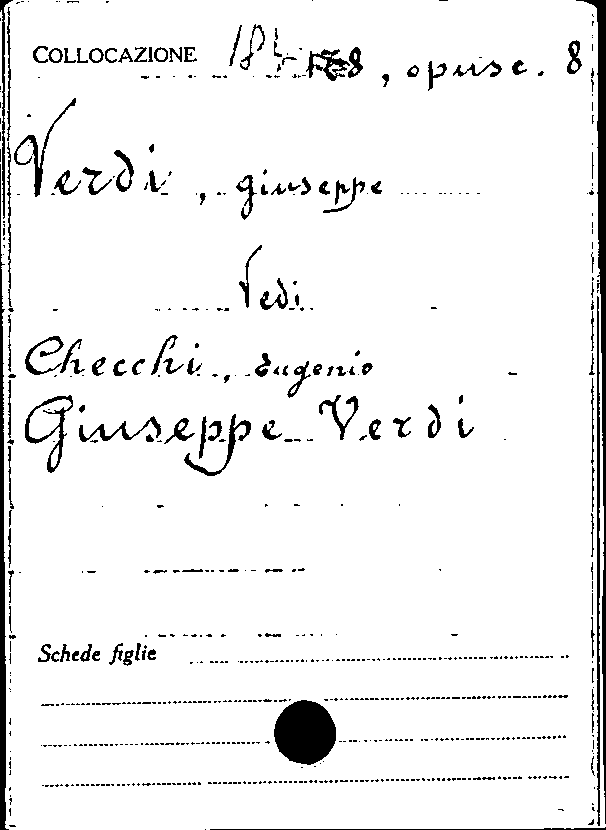 COLLOCAZIONE , opusc. 8
Verdi, giuseppe
Vedi
Checchi, Eugenio
Giuseppe Verdi
Schede figlie